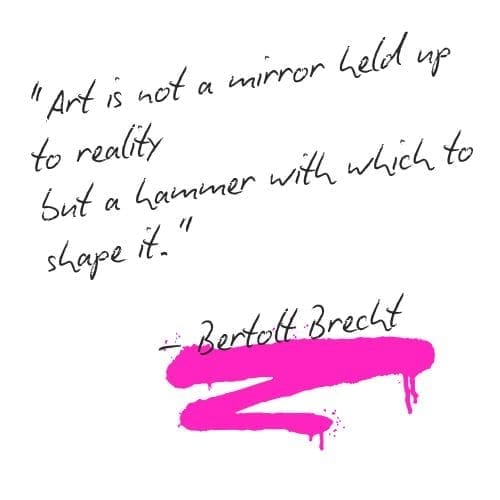 "Art is not a mirror held up
to reality
but a hammer with which to
shape it."
– Bertolt Brecht